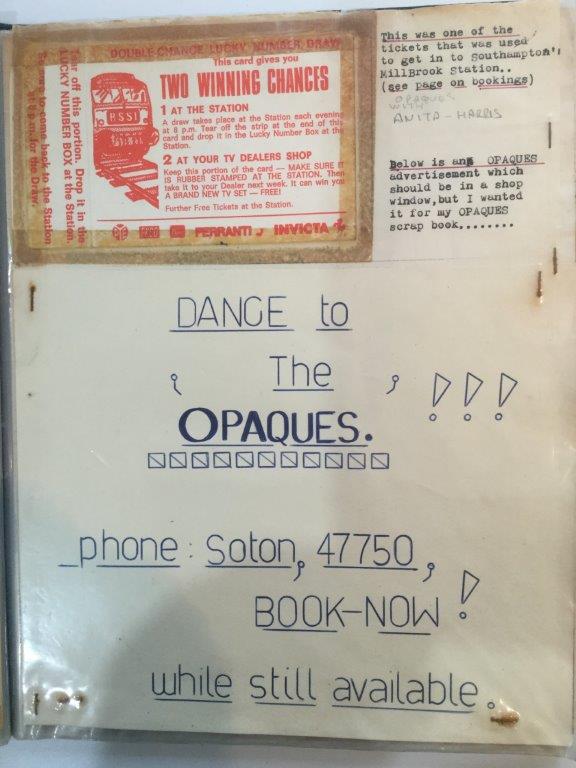 DOUBLE-CHANCE LUCKY NUMBER DRAW
This card gives you
TWO WINNING CHANCES
1 AT THE STATION
A draw takes place at the Station each evening
at 8 p.m. Tear off the strip at the end of this
card and drop it in the Lucky Number Box at the
Station.
2 AT YOUR TV DEALERS SHOP
Keep this portion of the card — MAKE SURE IT
IS RUBBER STAMPED AT THE STATION. Then
take it to your Dealer next week. It can win you
A BRAND NEW TV SET — FREE!
Further Free Tickets at the Station.
FERRANTI INVICTA
RSSI
Tear off this portion. Drop it in the
LUCKY NUMBER BOX at the Station.
Be sure to come back to the Station
at 8 p.m. for the Draw.
This was one of the
tickets that was used
to get in to Southampton'
MillBrook Station..
(see page on bookings)
OPAQUES
WITH
ANITA-HARRIS
Below is an OPAQUES
advertisement which
should be in a shop
window,but I wanted
it for my OPAQUES
scrap book........
DANCE to
, The , !!!
OPAQUES.
phone : Soton, 47750,
BOOK-NOW !
while still available.